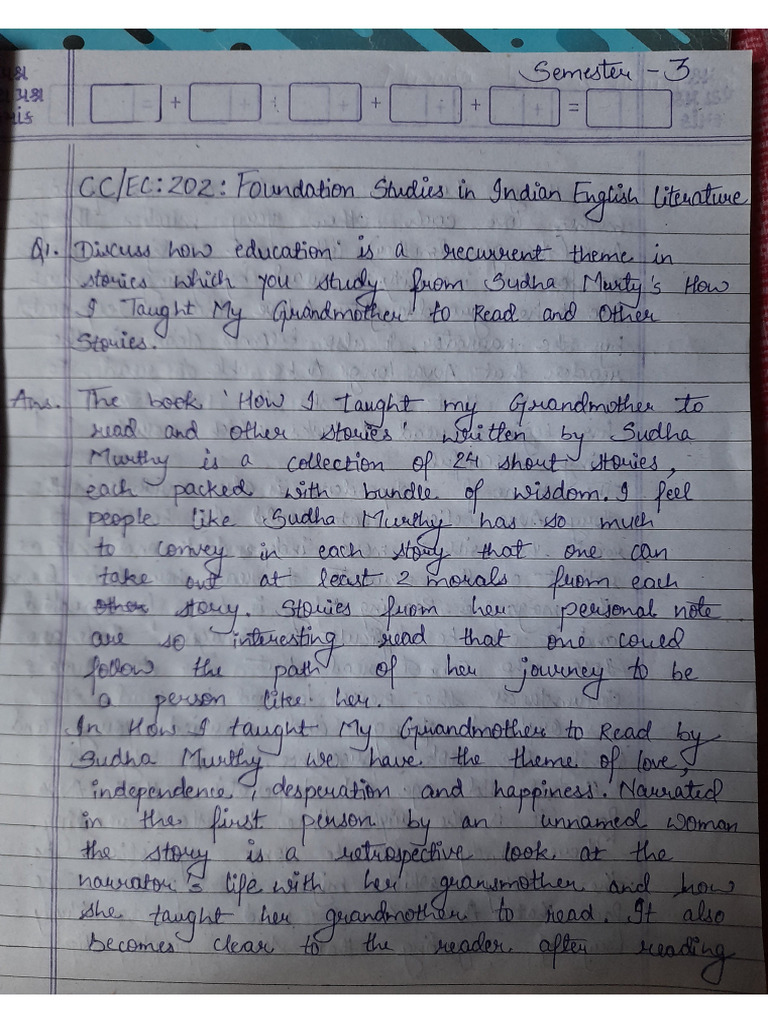 Semester - 3
+ + + + =
CC/EC:202: Foundation Studies in Indian English Literature
Q1. Discuss how education is a recurrent theme in
stories which you study from Sudha Murty's How
I Taught My Grandmother to Read and Other
Stories.
Ans. The book 'How I taught my Grandmother to
read and other stories' written by Sudha
Murthy is a collection of 24 short stories,
each packed with bundle of wisdom. I feel
people like Sudha Murthy has so much
to convey in each story that one can
take out at least 2 morals from each
story. Stories from her personal note
are so interesting read that one could
follow the path of her journey to be
a person like her.
In How I taught My Grandmother to Read by
Sudha Murthy we have the theme of love,
independence, desperation and happiness. Narrated
in the first person by an unnamed woman
the story is a retrospective look at the
narrator's life with her gransmother and how
she taught her grandmother to read. It also
becomes clear to the reader after reading